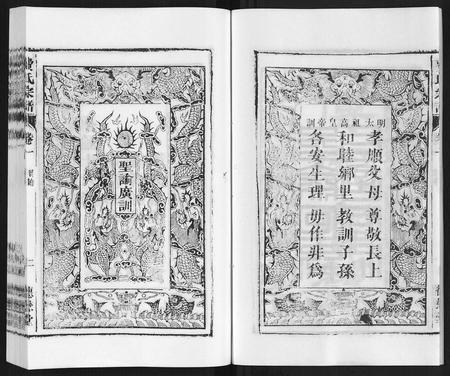 明太祖高皇帝訓
孝順父母 尊敬長上
和睦鄉里 教訓子孫
各安生理 毋作非為
聖諭廣訓
氏宗譜
卷一